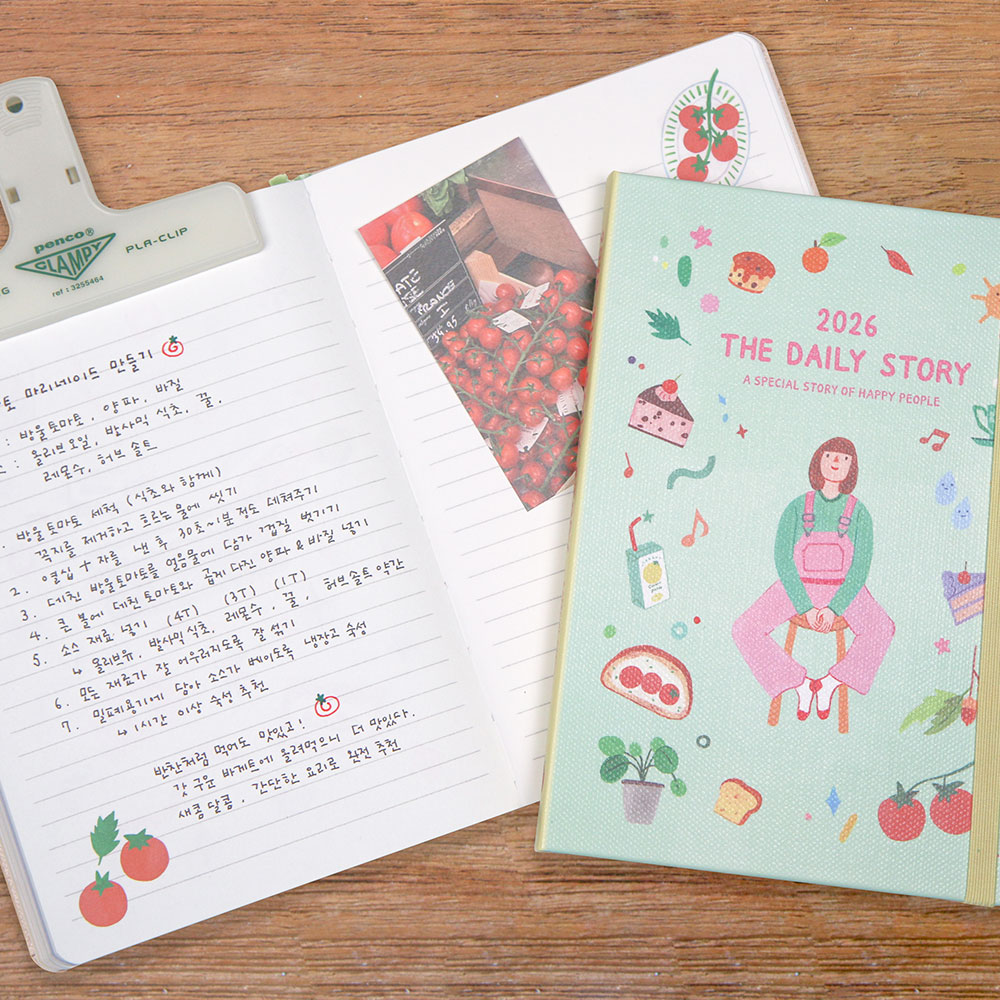 penco®
CLAMPY
PLA-CLIP
ref : 3255464
마리네이드 만들기
: 방울토마토, 양파, 바질
: 올리브오일, 발사믹 식초, 꿀,
레몬수, 허브 솔트
방울토마토 세척 (식초와 함께)
꼭지를 제거하고 흐르는 물에 씻기
2. 열십 十자를 낸 후 30초~1분 정도 데쳐주기
3. 데친 방울토마토를 얼음물에 담가 껍질 벗기기
4. 큰 볼에 데친 토마토와 곱게 다진 양파 & 바질 넣기
5. 소스 재료 넣기 (4T) (3T) (1T)
↳ 올리브유, 발사믹식초, 레몬수, 꿀, 허브솔트 약간
6. 모든 재료가 잘 어우러지도록 잘 섞기
7. 밀폐용기에 담아 소스가 베이도록 냉장고 숙성
↳ 1시간 이상 숙성 추천
반찬처럼 먹어도 맛있고!
갓 구운 바게트에 올려먹으니 더 맛있다.
새콤달콤, 간단한 요리로 완전 추천
FRANCE
I
2026
THE DAILY STORY
A SPECIAL STORY OF HAPPY PEOPLE